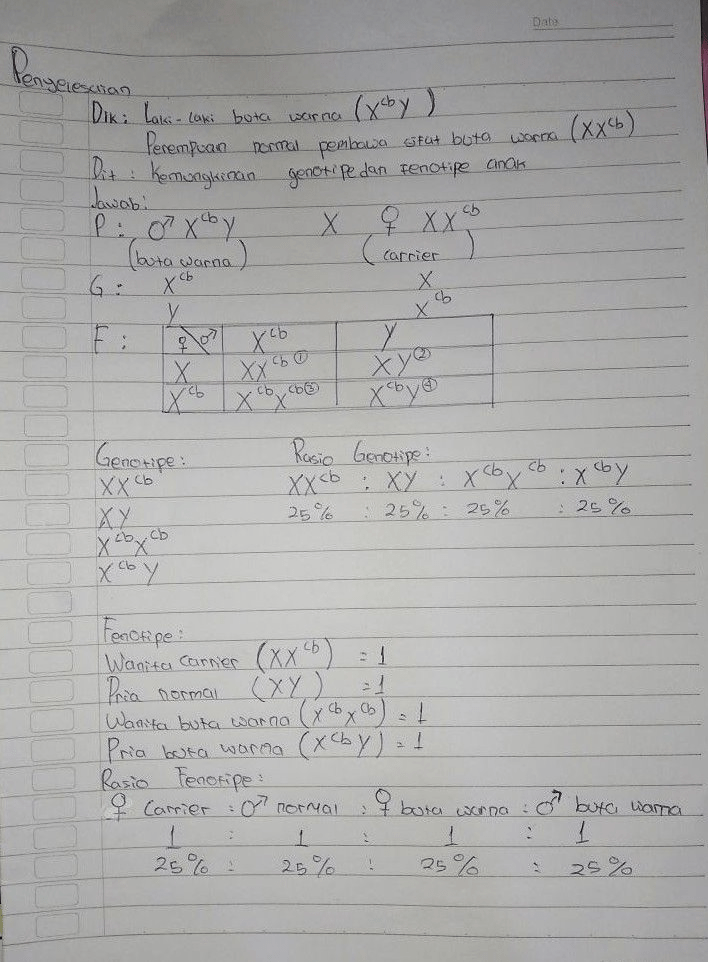 Date
Penyelesaian
Dik: Laki-laki buta warna (X^cb Y)
Perempuan normal pembawa sifat buta warna (XX^cb)
Dit: Kemungkinan genotipe dan fenotipe anak
Jawab:
P: ♂ X^cb Y X ♀ XX^cb
(buta warna) (carrier)
G: X^cb X
Y X^cb
F: ♀ \ ♂ X^cb Y
X XX^cb ① XY ②
X^cb X^cb X^cb ③ X^cb Y ④
Genotipe: Rasio Genotipe:
XX^cb XX^cb : XY : X^cb X^cb : X^cb Y
XY 25% : 25% : 25% : 25%
X^cb X^cb
X^cb Y
Fenotipe:
Wanita carrier (XX^cb) = 1
Pria normal (XY) = 1
Wanita buta warna (X^cb X^cb) = 1
Pria buta warna (X^cb Y) = 1
Rasio Fenotipe:
♀ Carrier : ♂ normal : ♀ buta warna : ♂ buta warna
1 : 1 : 1 : 1
25% : 25% : 25% : 25%